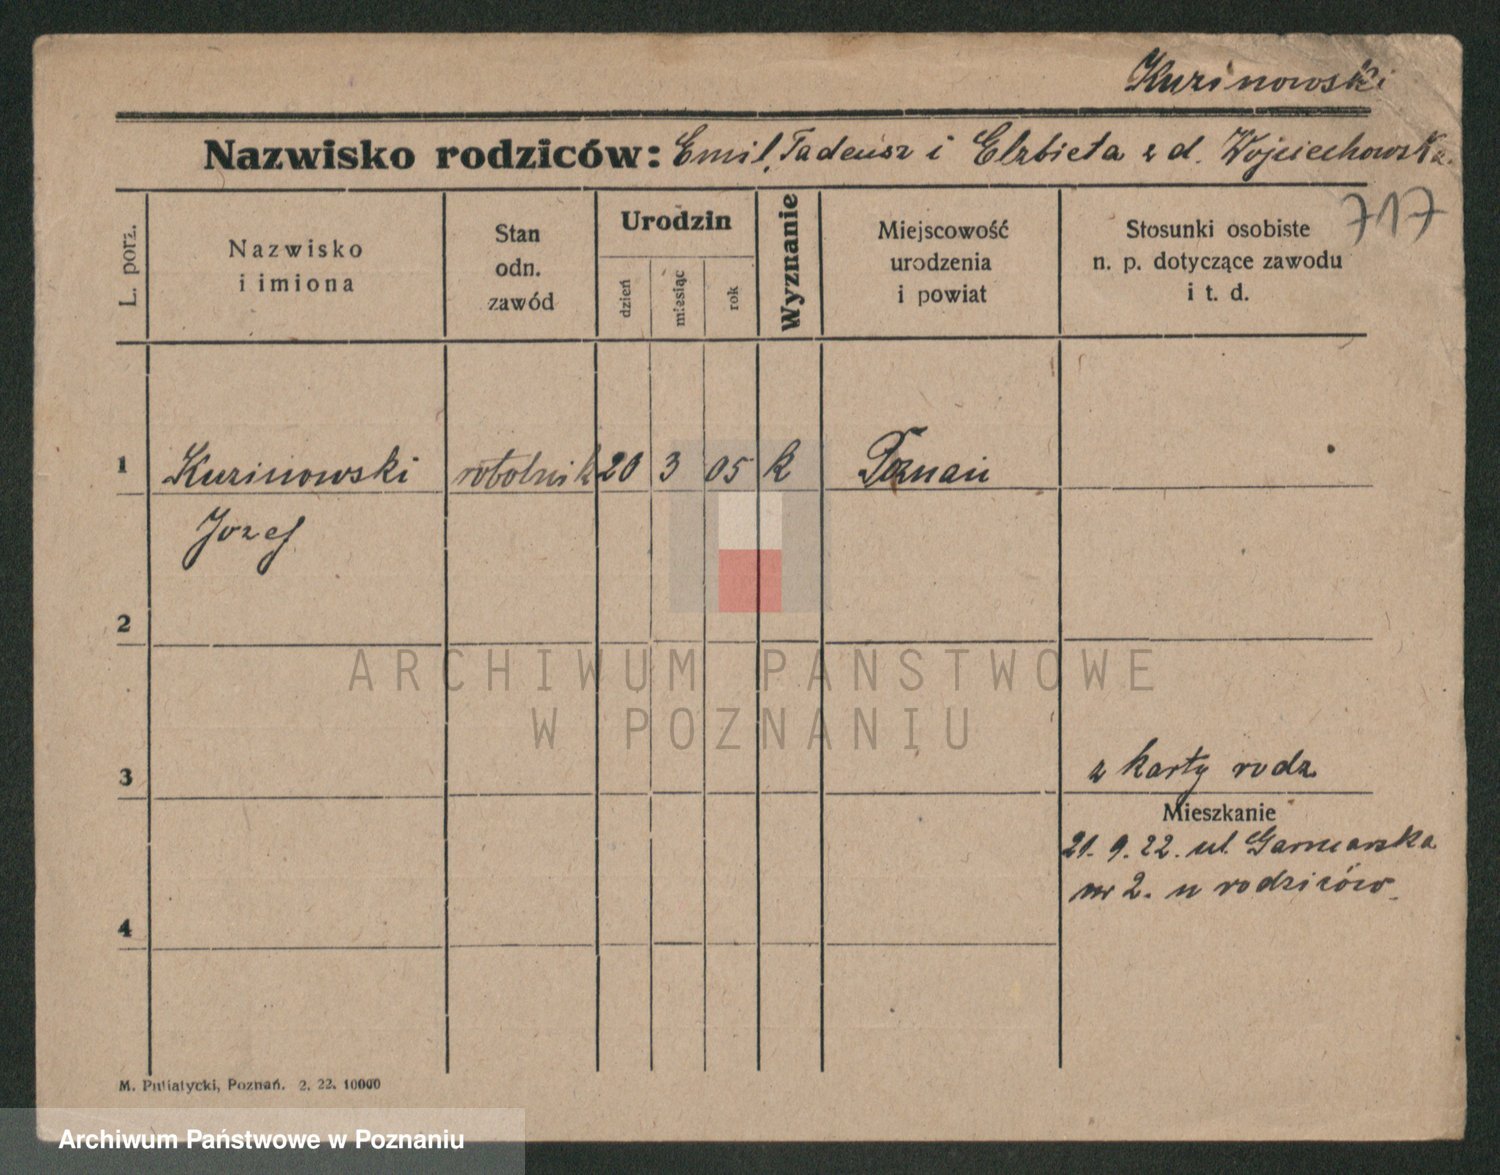 Kurinowski
Nazwisko rodziców: Emil, Tadeusz i Elzbieta z d. Wojciechowska.
717
L. porz.
Nazwisko
i imiona
Stan
odn.
zawód
Urodzin
dzień
miesiąc
rok
Wyznanie
Miejscowość
urodzenia
i powiat
Stosunki osobiste
n. p. dotyczące zawodu
i t. d.
1 Kurinowski robotnik 20 3 05 k Poznań
Jozef
2
ARCHIWUM PAŃSTWOWE
W POZNANIU
3 z karty rodz
Mieszkanie
21. 9. 22. ul. Garncarska
nr 2. u rodziców.
4
M. Putiatycki, Poznań. 2. 22. 10000
Archiwum Państwowe w Poznaniu